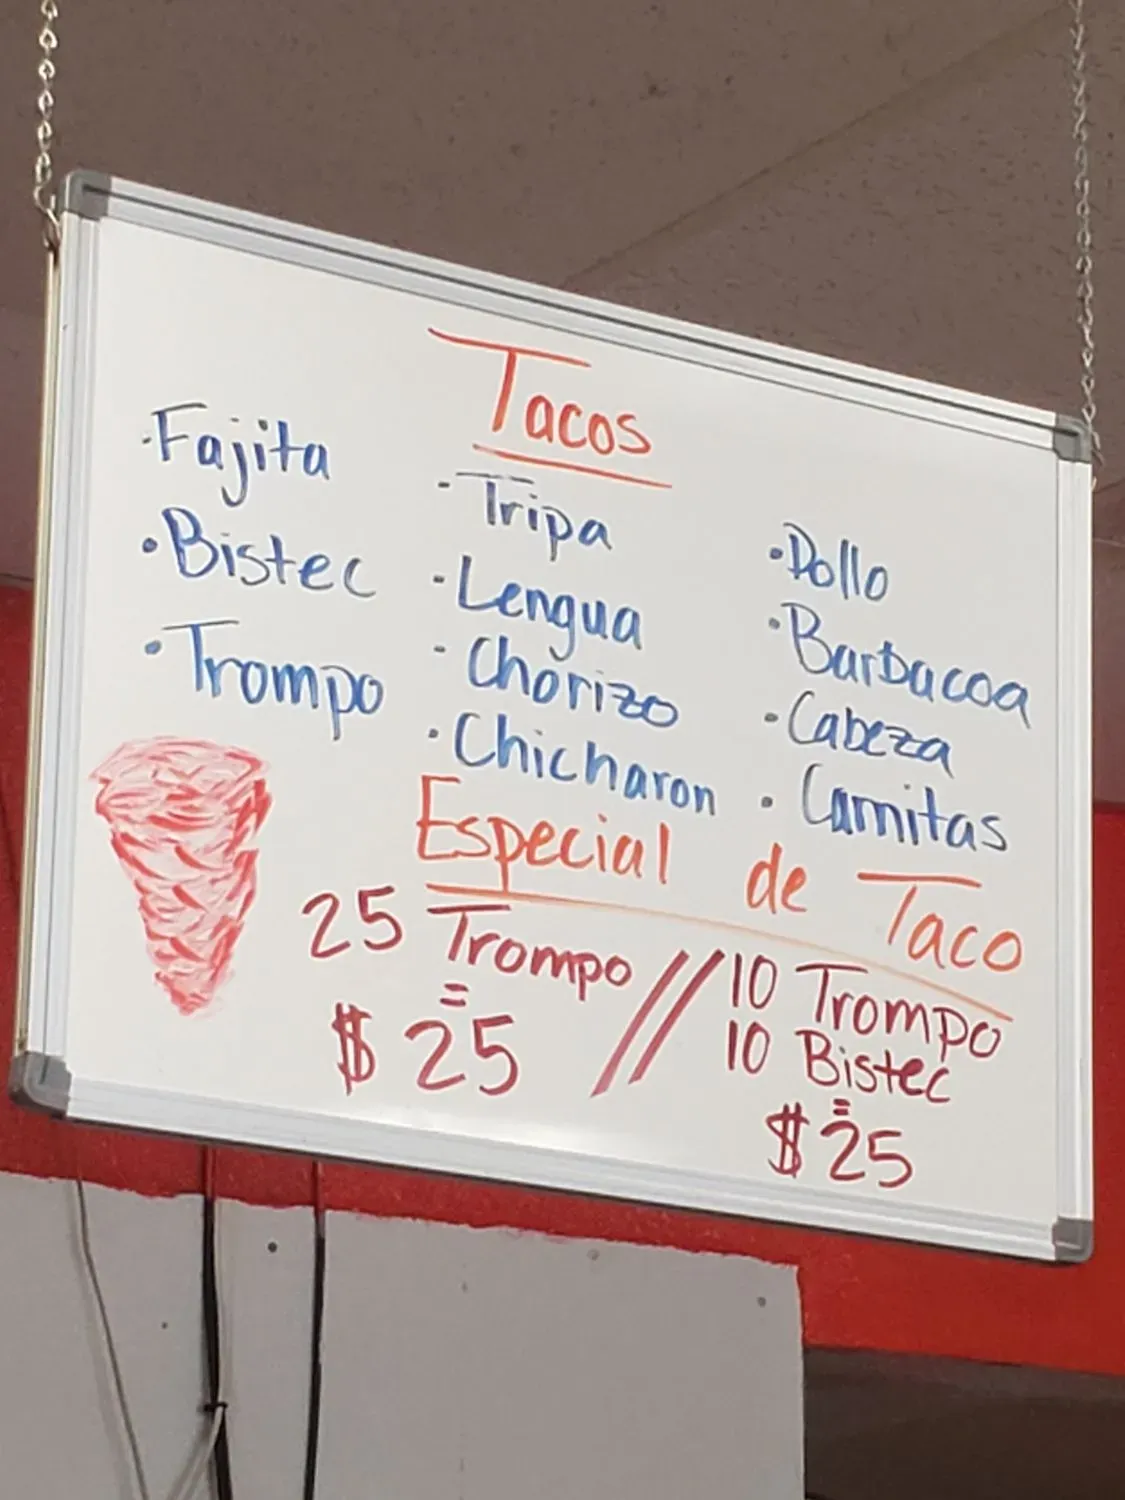 Tacos
· Fajita
· Bistec
· Trompo
- Tripa
- Lengua
- Chorizo
· Chicharon
· Pollo
· Barbacoa
· Cabeza
· Carnitas
Especial de Taco
25 Trompo
=
$ 25
//
10 Trompo
10 Bistec
=
$ 25